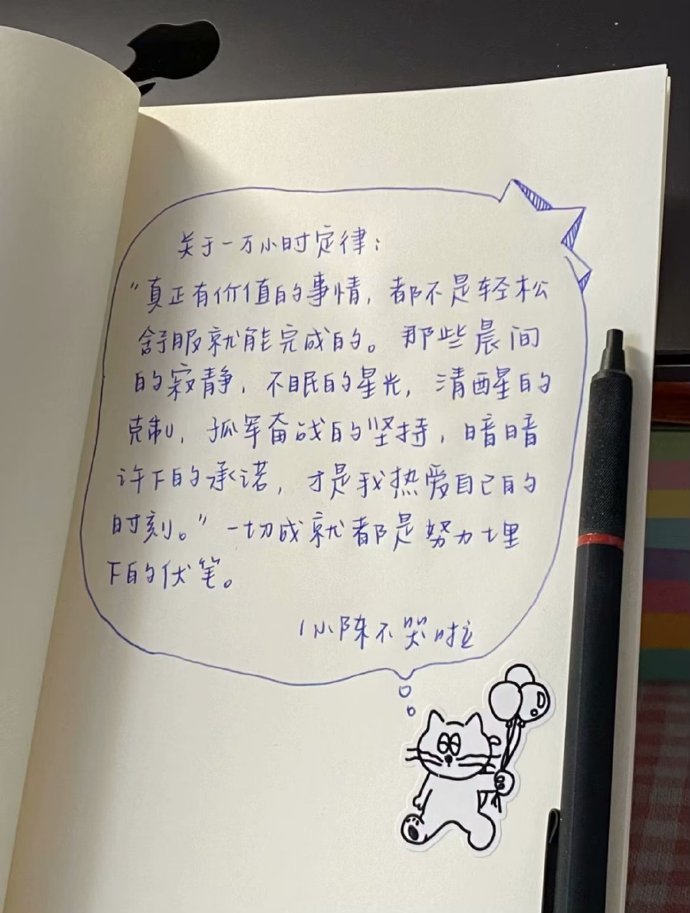 关于一万小时定律：
“真正有价值的事情，都不是轻松
舒服就能完成的。那些晨间
的寂静，不眠的星光，清醒的
克制，孤军奋战的坚持，暗暗
许下的承诺，才是我热爱自己的
时刻。”一切成就都是努力埋
下的伏笔。
小陈不哭啦